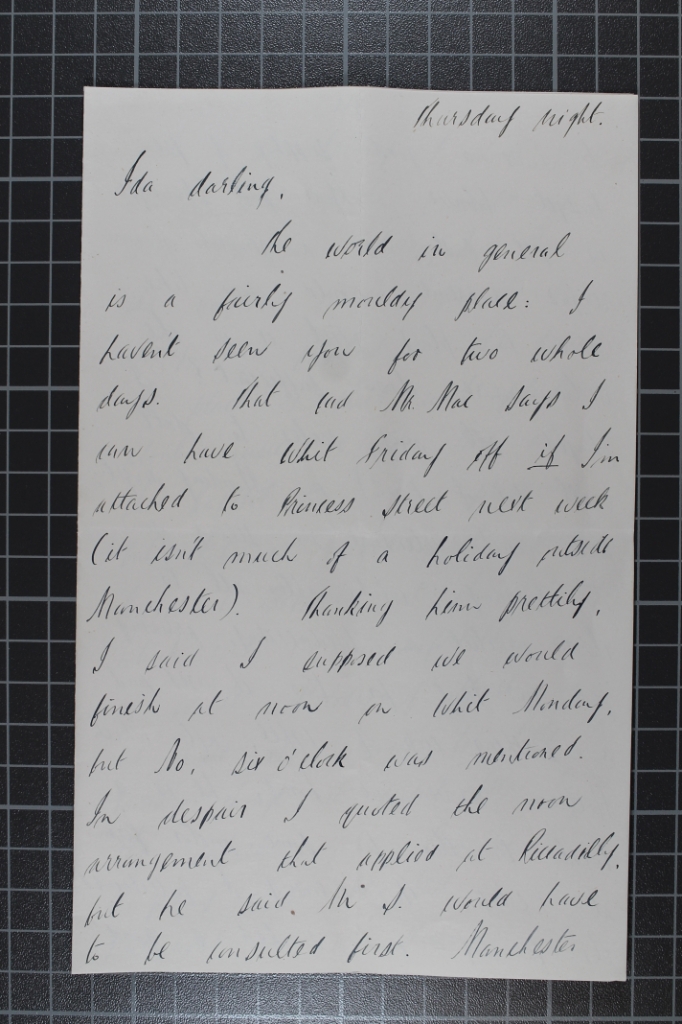 Thursday night.
Ida darling,
The world in general
is a fairly mouldy place: I
haven't seen you for two whole
days. That cad Mr. Mac says I
can have Whit Friday off if I'm
attached to Princess Street next week
(it isn't much of a holiday outside
Manchester). Thanking him prettily,
I said I supposed we would
finish at noon on Whit Monday,
but No, six o'clock was mentioned.
In despair I quoted the noon
arrangement that applied at Piccadilly,
but he said, Mr S. would have
to be consulted first. Manchester